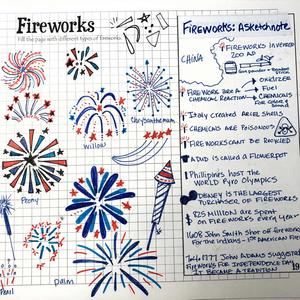 Fireworks
Fill the page with different types of fireworks.
Chrysanthemum
Willow
Peony
Palm
Pearl
FIREWORKS: A sketchnote
FIREWORKS INVENTED
200 AD
CHINA
OXIDIZER
FIREWORK ARE A
CHEMICAL REACTION
Fuel
CHEMICALS
FOR COLOR &
SOUND
Italy created AERIAL SHELLS
FIREWORKS CAN'T BE RECYCLED
A DUD IS CALLED A FLOWERPOT
Phillipines host the
WORLD Pyro OLYMPICS
DISNEY IS THE LARGEST
PURCHASER OF FIREWORKS
$25 MILLION ARE SPENT
ON FIREWORKS EVERY YEAR
1608 John Smith shot off fireworks
for the indians - 1st American Fir
July 1777 John ADAMS suggested
FIREWORKS FOR INDEPENDENCE DAY
IT BECAME A TRADITION